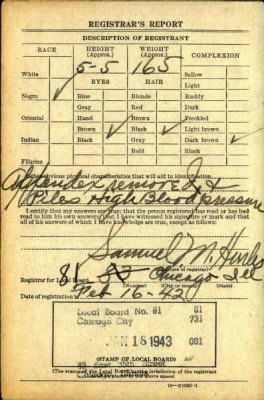 REGISTRAR'S REPORT
DESCRIPTION OF REGISTRANT
RACE HEIGHT (Approx.) WEIGHT (Approx.) COMPLEXION
5-5 165
White EYES HAIR Sallow
Light
Negro ✓ Blue Blonde Ruddy
Gray Red Dark
Oriental Hazel Brown Freckled
Brown ✓ Black ✓ Light brown
Indian Black Gray Dark brown ✓
Bald Black
Filipino
Other obvious physical characteristics that will aid in identification
Appendex removed &
Piles High Blood pressure
I certify that my answers are true; that the person registered has read or has had
read to him his own answers; that I have witnessed his signature or mark and that
all of his answers of which I have knowledge are true, except as follows:
Samuel M.
Registrar for Local Board 81 Chicago Ill
(Number) (City or county) (State)
Date of registration Feb 16-42
Local Board No. 81 81
Chicago City 731
18 1943 081
(STAMP OF LOCAL BOARD)
(The stamp of the Local Board having jurisdiction of the registrant
shall be placed in the above space)